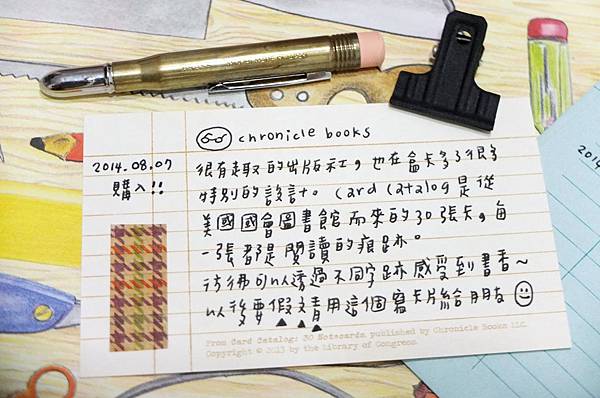 chronicle books
2014.08.07
購入!!
很有趣的出版社，也在盒卡多了很多
特別的設計。Card Catalog是從
美國國會圖書館而來的30張卡，每
一張都是閱讀的痕跡。
彷彿可以透過不同字跡感受到書香~
以後要假文青用這個寫卡片給朋友
From Card Catalog: 30 Notecards, published by Chronicle Books LLC.
Copyright © 2013 by the Library of Congress.
2014